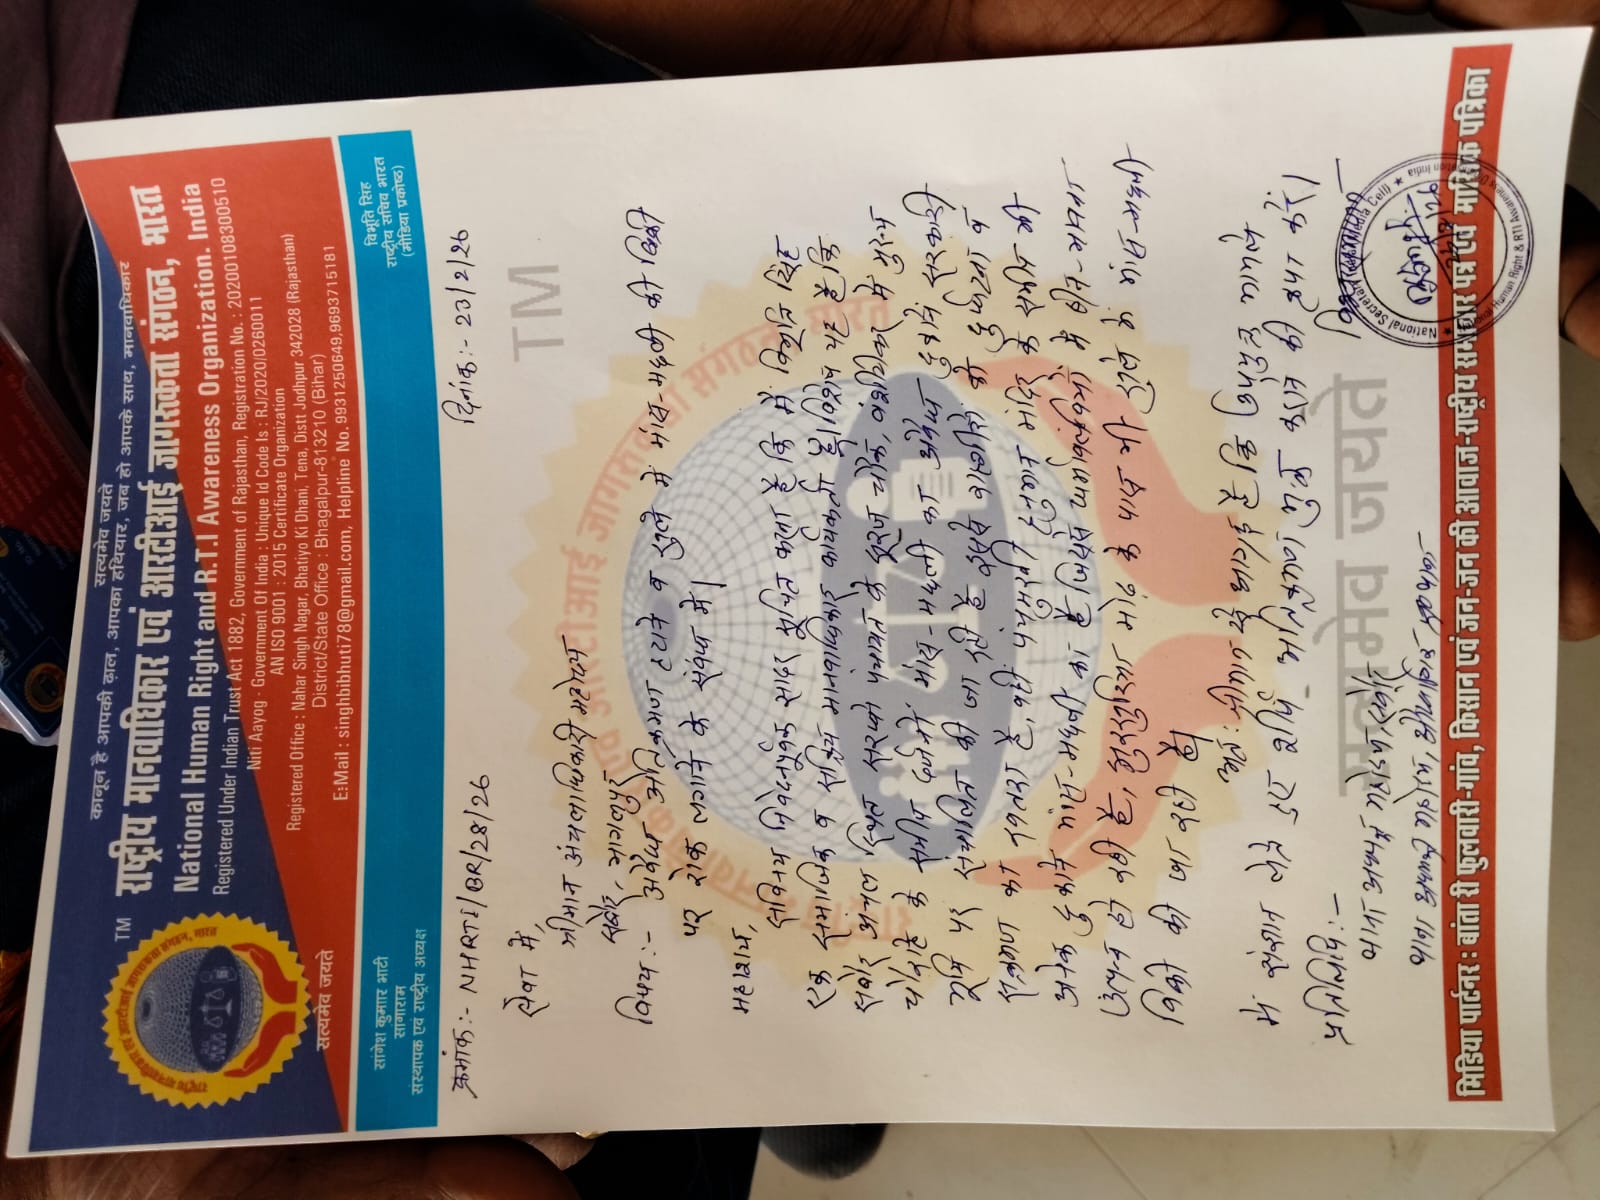 सत्यमेव जयते
कानून है आपकी ढ़ाल, आपका हथियार, जब हो आपके साथ, मानवाधिकार
TM
राष्ट्रीय मानवाधिकार एवं आरटीआई जागरुकता संगठन, भारत
National Human Right and R.T.I Awareness Organization. India
Registered Under Indian Trust Act 1882, Government of Rajasthan, Registration No. : 202001083００510
Niti Aayog - Government Of India : Unique Id Code Is : RJ/2020/0260011
AN ISO 9001 : 2015 Certificate Organization
Registered Office : Nahar Singh Nagar, Bhatiyo Ki Dhani, Tena, Distt Jodhpur 342028 (Rajasthan)
District/State Office : Bhagalpur-813210 (Bihar)
E:Mail : singhbibhuti78@gmail.com, Helpline No. 9931250649,9693715181
सत्यमेव जयते
सांगेश कुमार भाटी
सांगाराम
संस्थापक एवं राष्ट्रीय अध्यक्ष
विभूति सिंह
राष्ट्रीय सचिव भारत
(मीडिया प्रकोष्ठ)
क्रमांक:- NHRTI/BR/28/26
दिनांक:- 23/2/26
सेवा में,
श्रीमान अंचलाधिकारी महोदय
सबौर, भागलपुर
विषय:- अवैध अतिक्रमण हटाने व खुले में मांस-मछली की बिक्री
पर रोक लगाने के संबंध में|
महाशय,
सविनय निवेदनपूर्वक सादर सूचित करना है कि मैं विभूति सिंह
एक सामाजिक व सक्रिय मानवाधिकार कार्यकर्ता हूँ। विशेष यह है कि
सबौर अंचल स्थित सरधो पंचायत के सूरज चौक, वंशीटिकर में मुख्य
चौराहे के समीप दर्जनों मांस-मछली का अवैध दुकाने सरकारी
भूमि पर संचालित की जा रही है इससे राहगीरों को दुर्घटना व
संक्रमण का खतरा है, वहीं पंचमुखी हनुमान मंदिर के समीप भी
अनेक दुकाने मांस-मछली का है। जिससे धर्मावलंबियों में हीन-भावना
उत्पन्न हो रही है, खुरदुरिया मोड़ के पास भी खुले में मांस-मछली
बिक्री की जा रही है।
अतः श्रीमान से प्रार्थना है कि उपर्युक्त मामले
में संज्ञान लेते हुए शीघ्र अतिक्रमण मुक्त कराने की कृपा करें।
प्रतिलिपि:-
थाना अध्यक्ष महोदय सबौर
सत्यमेव जयते
National Secretary (Media Cell)
National Human Right & RTI Awareness Organization India
मिडिया पार्टनर : बांता री फुलवारी-गांव, किसान एवं जन-जन की आवाज-राष्ट्रीय समाचार पत्र एवं मासिक पत्रिका